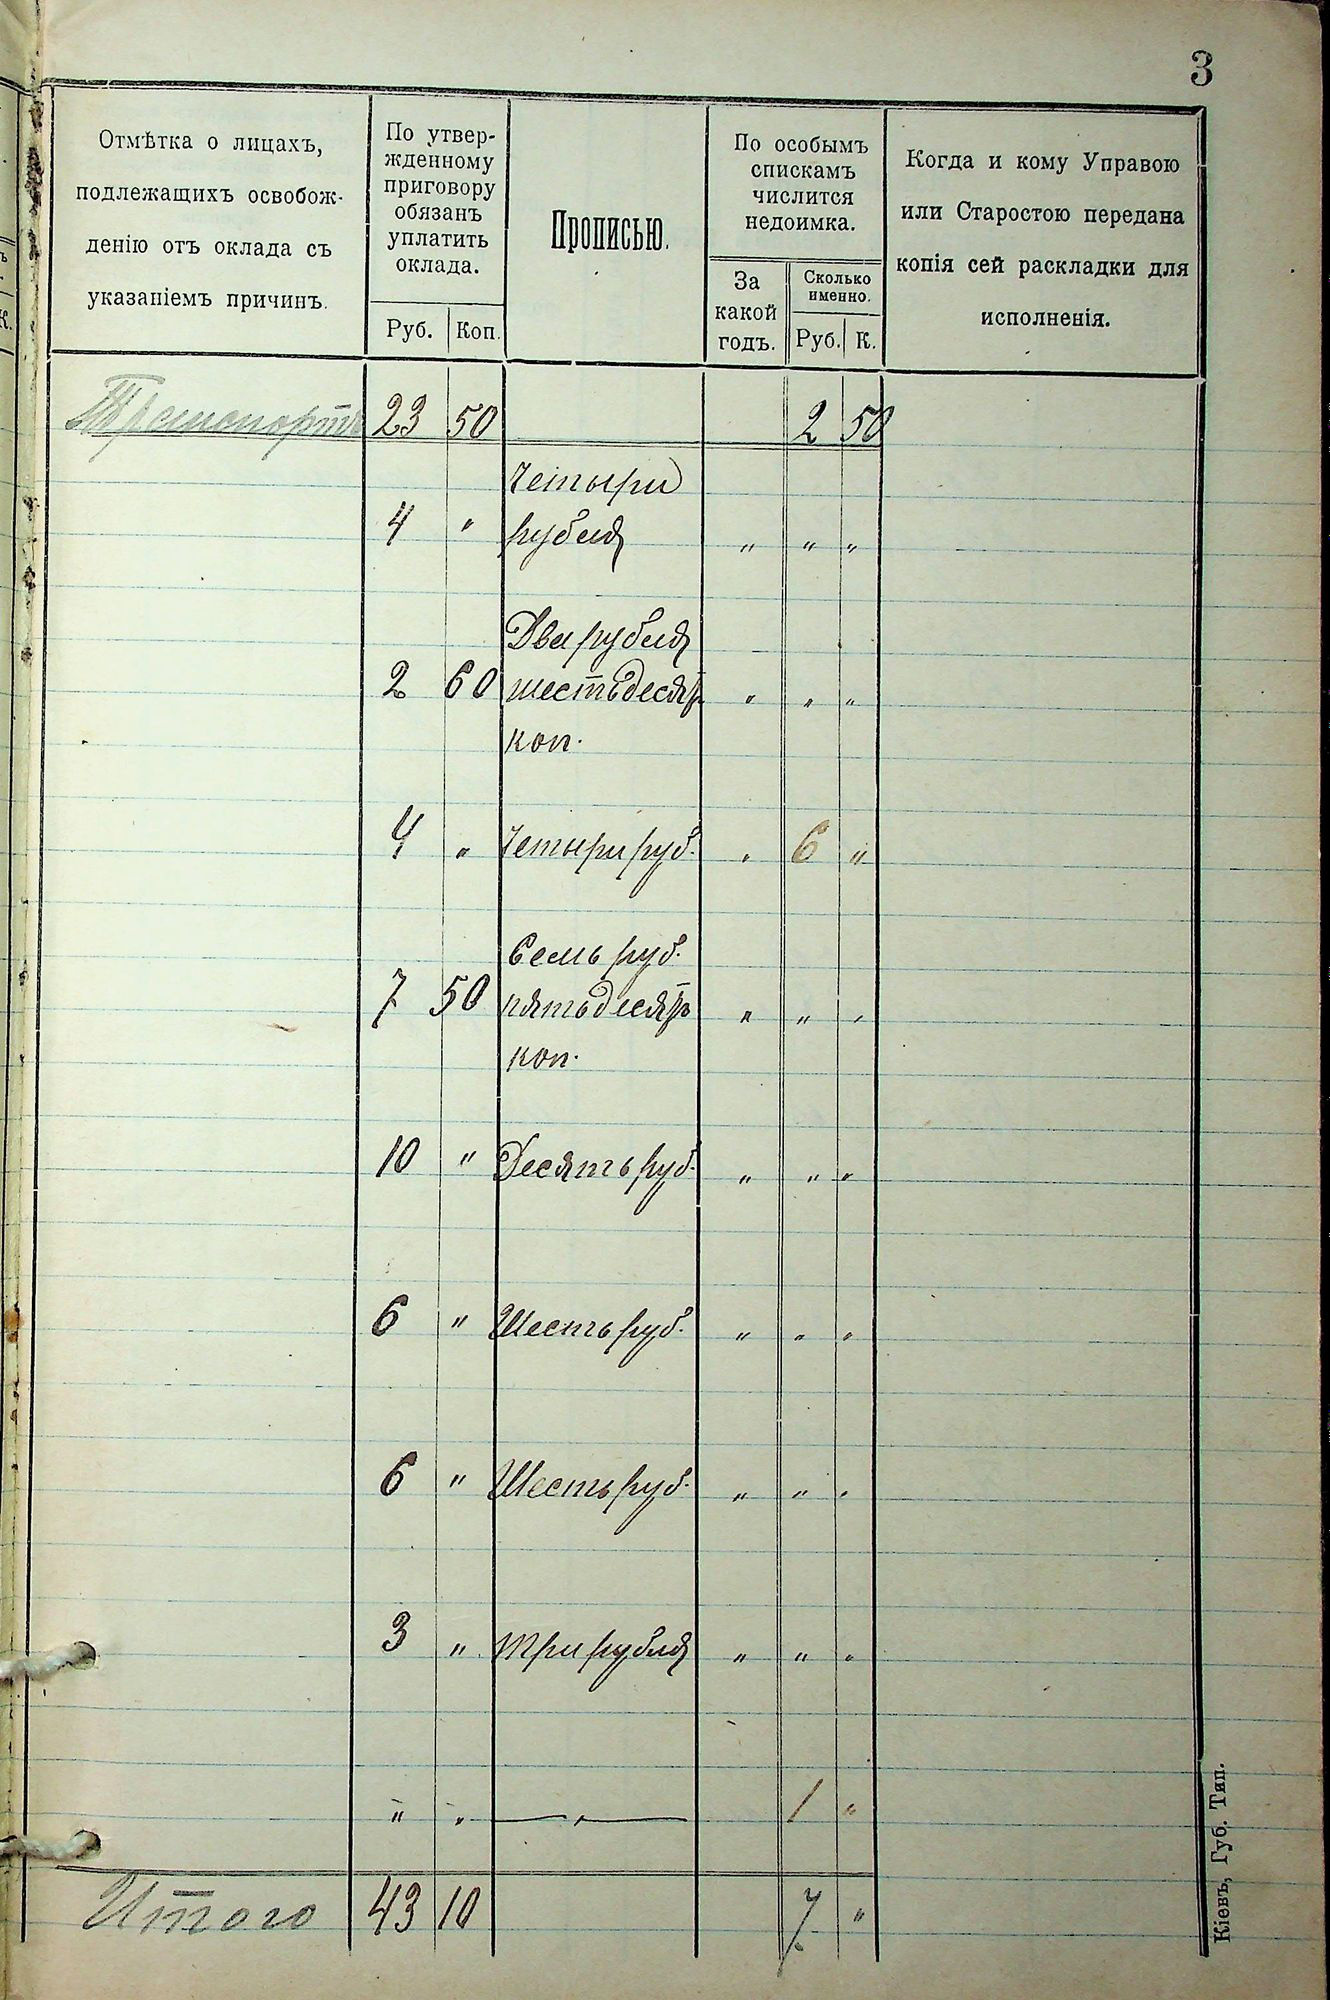 3
Отмѣтка о лицахъ,
подлежащихъ освобож-
денію отъ оклада съ
указаніемъ причинъ.
По утвер-
жденному
приговору
обязанъ
уплатить
оклада.
Руб. Коп.
Прописью.
По особымъ
спискамъ
числится
недоимка.
За
какой
годъ.
Сколько
именно.
Руб. К.
Когда и кому Управою
или Старостою передана
копія сей раскладки для
исполненія.
К.
Транспортъ 23 50 2 50
Четыри
4 " рубля " " "
Два рубля
2 60 шестьдесятъ " " "
коп.
4 " Четыри руб. " 6 "
Семь руб.
7 50 пятьдесятъ " " "
коп.
10 " Десять руб. " " "
6 " Шесть руб. " " "
6 " Шесть руб. " " "
3 " Три рубля " " "
" " — " — 1 "
Итого 43 10 7 "
Кіевъ, Губ. Тип.